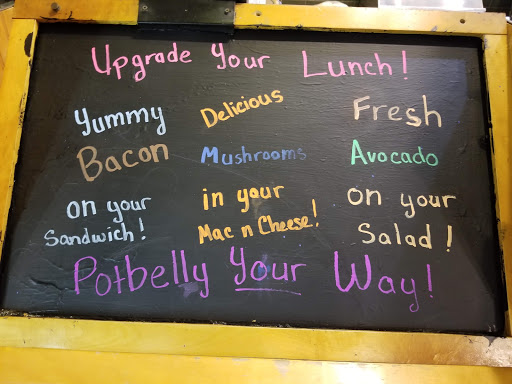 Upgrade Your Lunch!
Yummy Delicious Fresh
Bacon Mushrooms Avocado
on your in your on your
Sandwich! Mac n Cheese! Salad!
Potbelly Your Way!